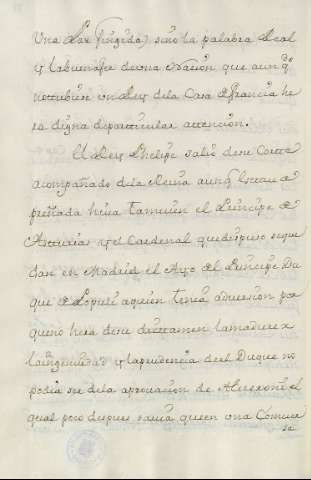 Una Paz fingida, sino la palabra Real
y la buena fee de una Nacion que aunq.e
no tubiera un Rey de la Casa de Francia he
ra digna de particular atencion.
El Rey Phelipe salio de su Corte
acompañado de la Reina aunq.e estava
preñada hiva tamvien el Principe de
Asturias y el Cardenal que dispuso se que
dase en Madrid el Ayo del Principe Du
que de Populi a quien tenia adversion por
que no hera de su dictamen la madurez
la ingenuidad y la prudencia de el Duque no
podia ser de la aprovacion de Alveroni el
qual poco despues savia quien una Comuni